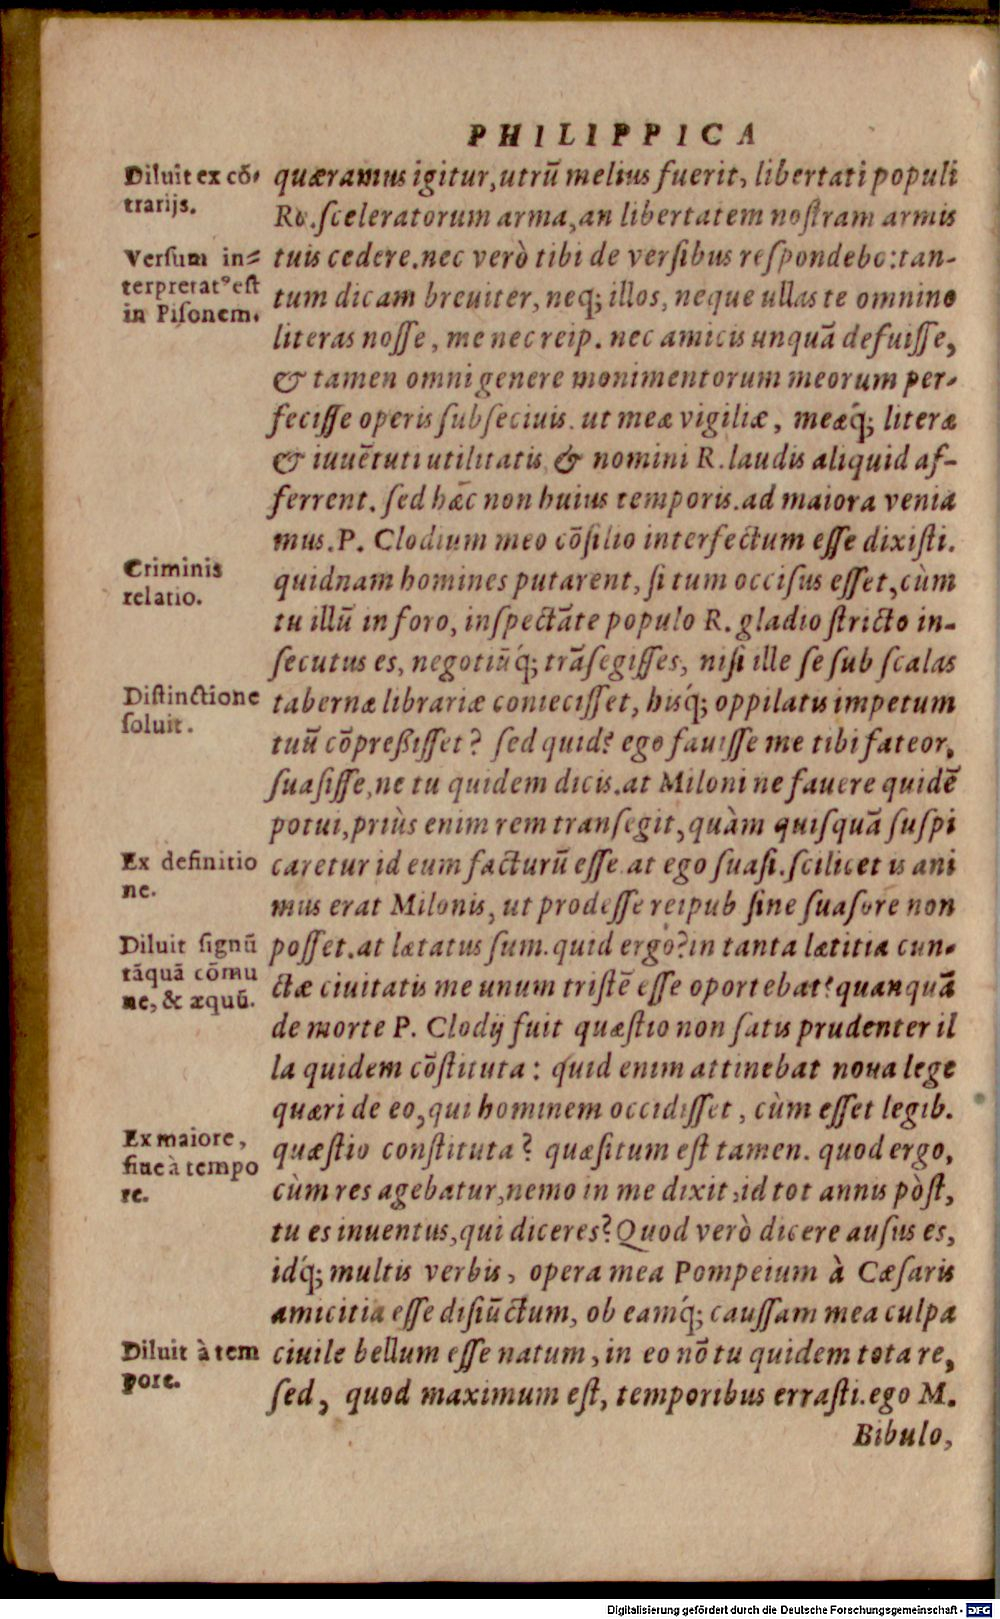 PHILIPPICA
Diluit ex cō-
trarijs.
Versum in-
terpretatꝰ est
in Pisonem.
Criminis
relatio.
Distinctione
soluit.
Ex definitio
ne.
Diluit signū
tāquā cōmu
ne, & æquū.
Ex maiore,
siue à tempo
re.
Diluit à tem
pore.
quæramus igitur, utrū melius fuerit, libertati populi
Ro. sceleratorum arma, an libertatem nostram armis
tuis cedere. nec verò tibi de versibus respondebo: tan-
tum dicam breuiter, neq; illos, neque ullas te omnino
literas nosse, me nec reip. nec amicis unquā defuisse,
& tamen omni genere monimentorum meorum per-
fecisse operis subseciuis. ut meæ vigiliæ, meæq́; literæ
& iuuētuti utilitatis & nomini R. laudis aliquid af-
ferrent. sed hæc non huius temporis. ad maiora venia
mus. P. Clodium meo cōsilio interfectum esse dixisti.
quidnam homines putarent, si tum occisus esset, cùm
tu illū in foro, inspectāte populo R. gladio stricto in-
secutus es, negotiūq́; trāsegisses, nisi ille se sub scalas
tabernæ librariæ coniecisset, hisq́; oppilatis impetum
tuū cōpreßisset? sed quid? ego fauisse me tibi fateor,
suasisse, ne tu quidem dicis. at Miloni ne fauere quidē
potui, priùs enim rem transegit, quàm quisquā suspi
caretur id eum facturū esse. at ego suasi. scilicet is ani
mus erat Milonis, ut prodesse reipub sine suasore non
posset. at lætatus sum. quid ergo? in tanta lætitia cun-
ctæ ciuitatis me unum tristē esse oportebat? quanquā
de morte P. Clodij fuit quæstio non satis prudenter il
la quidem cōstituta: quid enim attinebat noua lege
quæri de eo, qui hominem occidisset, cùm esset legib.
quæstio constituta? quæsitum est tamen. quod ergo,
cùm res agebatur, nemo in me dixit, id tot annis pòst,
tu es inuentus, qui diceres? Quod verò dicere ausus es,
idq́; multis verbis, opera mea Pompeium à Cæsaris
amicitia esse disiūctum, ob eamq́; caussam mea culpa
ciuile bellum esse natum, in eo nō tu quidem tota re,
sed, quod maximum est, temporibus errasti. ego M.
Bibulo,
Digitalisierung gefördert durch die Deutsche Forschungsgemeinschaft - DFG